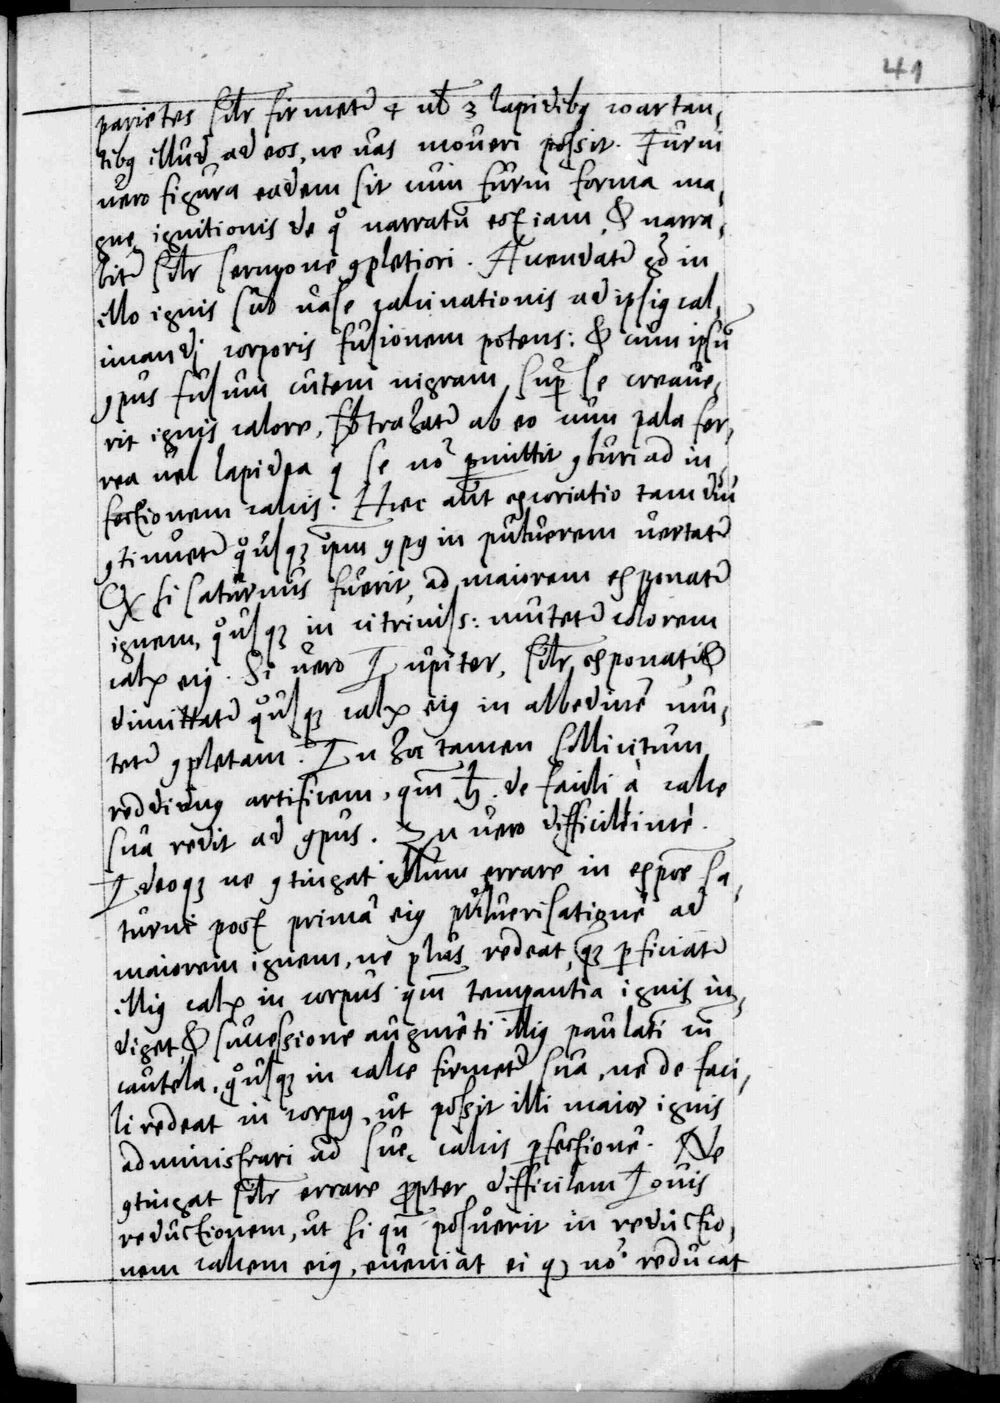 41
parietes silr firmetr 4 ul 3 lapidibq coartan,
tibq illud ad eos, ne uas moueri possit. Furni
uero figura eadem sit cum furni forma ma,
gne ignitionis de qo narratū est iam, & narra,
bitr silr sermone 9pletiori. Accendatr gͦ in
illo ignis sub uase calcinationis ad ipsiq cal,
cinandi corporis fusionem potens: & cum ipsū
9pus fusum cutem nigram, supͬ se creaue,
rit ignis calore, sbtrahatr ab eo cum pala fer,
rea uel lapidea q se nō pmittit 9buri ad in,
fectionem calcis. Hec aūt excoriatio tam diu
9tinuetr qousq3 ipm 9pq in puluerem uertatr
Q si saturnus fuerit, ad maiorem exponatr
ignem, qousq3 in citrinis: mutetr colorem
calx eiq. Si uero Iupiter, silr, exponatr &
dimittatr qousq3 calx eiq in albedinē mu,
tetr 9pletam. In hoc tamen sollicitum
reddimq artificem, qm ♄. de facili à calce
sua redit ad 9pus. In uero difficillimè.
Ideoq3 ne 9tingat illum errare in exponē sa,
turni post primā eiq puluerisationē ad
maiorem ignem, ne plus redeat, q3 pficiatr
illiq calx in corpus qm tempantia ignis in,
diget, & successione augmēti illiq paulatī cū
cautela, qousq3 in calce firmetr sua, ne de faci,
li redeat in corpq, ut possit illi maior ignis
administrari ad sue calcis pfectionē. Ne
9tingat silr errare ppter difficilem Iouis
reductionem, ut si qn posuerit in reductio,
nem calcem eiq, eueniat ei q nō reducat